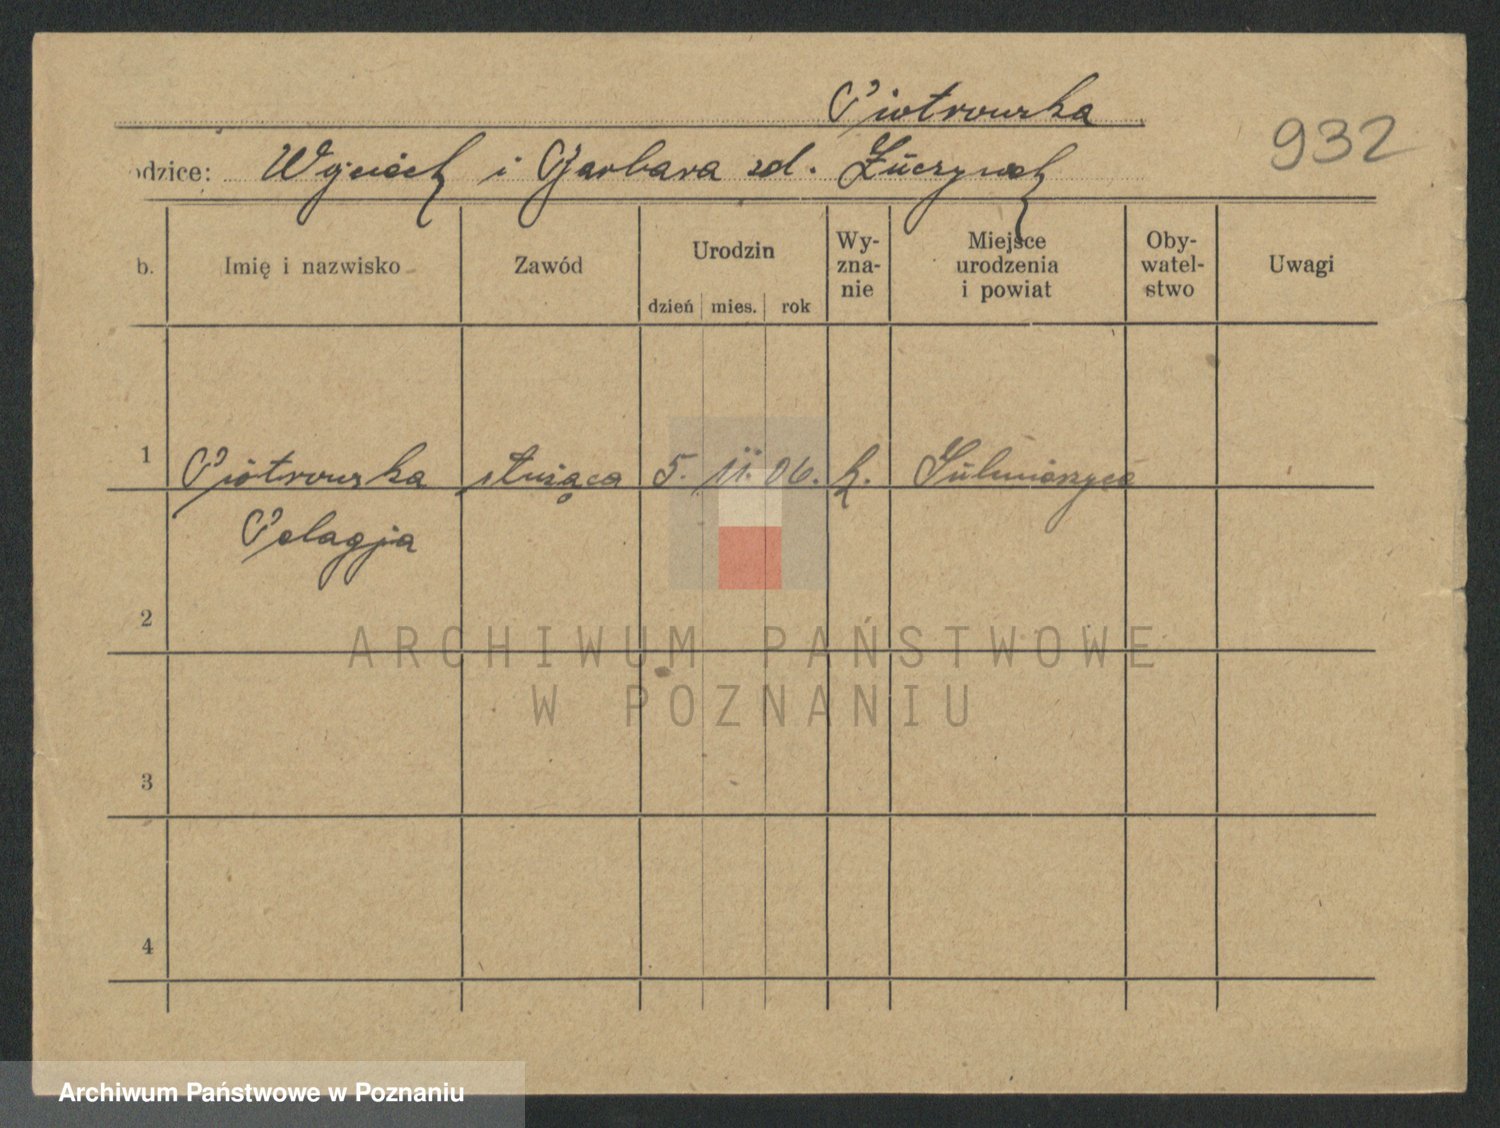 Piotrowska
932
odzice: Wojciech i Barbara zd.
b. Imię i nazwisko Zawód Urodzin dzień mies. rok Wyznanie Miejsce urodzenia i powiat Obywatelstwo Uwagi
1 Piotrowska służąca 5. 11. 06. k. Sulmierzyce
Pelagja
2
3
4
ARCHIWUM PAŃSTWOWE
W POZNANIU
Archiwum Państwowe w Poznaniu